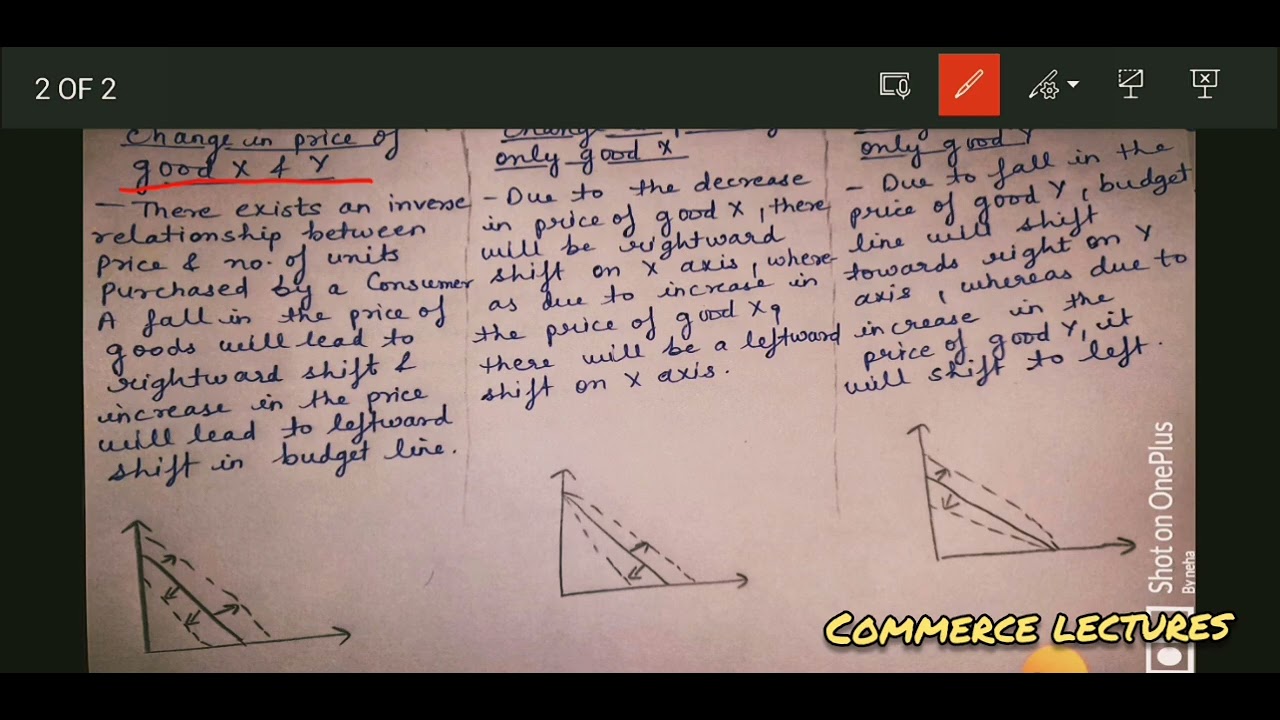 2 OF 2
Change in price of
good X & Y
- There exists an inverse
relationship between
price & no. of units
purchased by a Consumer
A fall in the price of
goods will lead to
rightward shift &
increase in the price
will lead to leftward
shift in budget line.
only good X
- Due to the decrease
in price of good X, there
will be rightward
shift on X axis, where
as due to increase in
the price of good X,
there will be a leftward
shift on X axis.
only good Y
- Due to fall in the
price of good Y, budget
line will shift
towards right on Y
axis, whereas due to
increase in the
price of good Y, it
will shift to left.
Shot on OnePlus
By neha
COMMERCE LECTURES